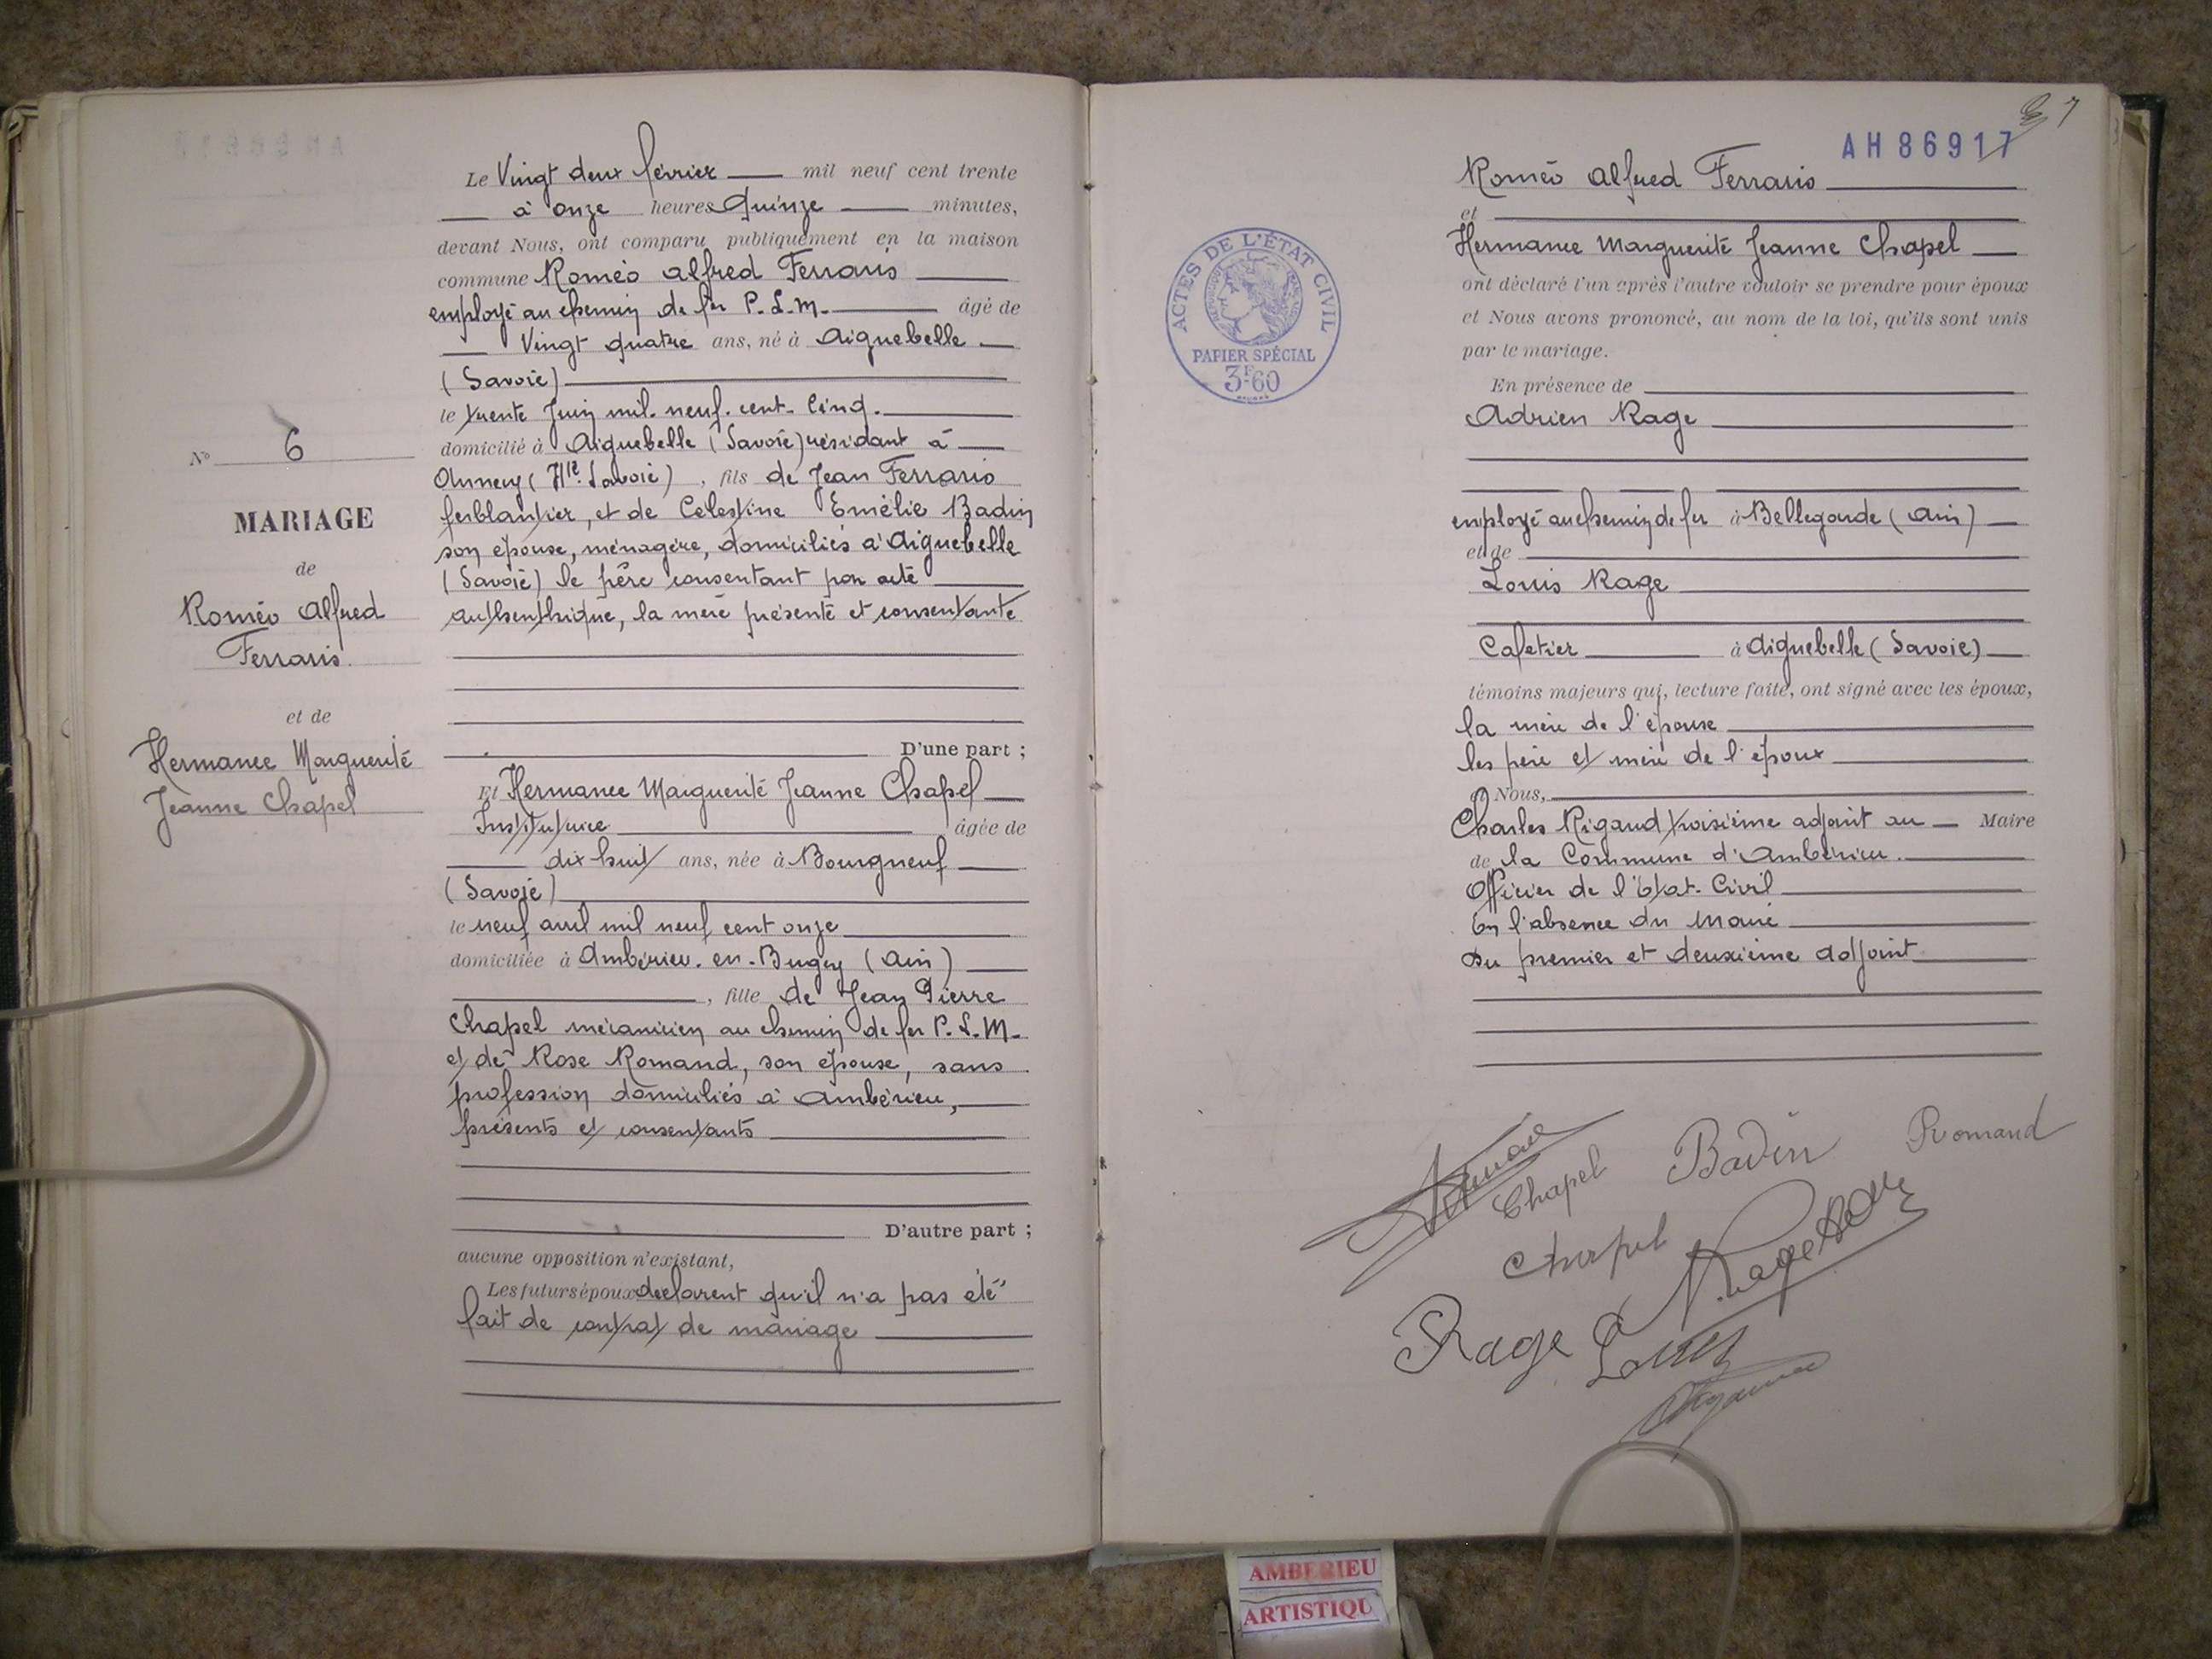 Le Vingt deux février mil neuf cent trente
à onze heures Quinze minutes,
devant Nous, ont comparu publiquement en la maison
commune Roméo Alfred Ferraris
employé au chemin de fer P.L.M. âgé de
Vingt quatre ans, né à Aiguebelle
(Savoie)
le trente Juin mil neuf cent cinq.
domicilié à Aiguebelle (Savoie) résidant à
Annecy (Hte Savoie), fils de Jean Ferraris
ferblantier, et de Celestine Emélie Badin
son épouse, ménagère, domiciliés à Aiguebelle
(Savoie) le père consentant par acte
authenthique, la mère présente et consentante
D'une part ;
Et Hermance Marguerite Jeanne Chapel
Institutrice âgée de
dix huit ans, née à Bourgneuf
(Savoie)
le neuf avril mil neuf cent onze
domiciliée à Ambérieu-en-Bugey (Ain)
, fille de Jean Pierre
Chapel mécanicien au chemin de fer P.L.M.
et de Rose Romand, son épouse, sans
profession domiciliés à Ambérieu,
présents et consentants
D'autre part ;
aucune opposition n'existant,
Les futurs époux declarent qu'il n'a pas été
fait de contrat de mariage
N° 6
MARIAGE
de
Roméo Alfred
Ferraris
et de
Hermance Marguerite
Jeanne Chapel
AH 86917
37
Roméo Alfred Ferraris
et
Hermance Marguerite Jeanne Chapel
ont déclaré l'un après l'autre vouloir se prendre pour époux
et Nous avons prononcé, au nom de la loi, qu'ils sont unis
par le mariage.
En présence de
Adrien Rage
employé au chemin de fer à Bellegarde (Ain)
et de
Louis Rage
Cafetier à Aiguebelle (Savoie)
témoins majeurs qui, lecture faite, ont signé avec les époux,
la mère de l'épouse
les père et mère de l'époux
et Nous,
Charles Rigaud troisième adjoint au Maire
de la Commune d'Ambérieu.
Officier de l'Etat-Civil
En l'absence du Maire
Du premier et deuxième adjoint
ACTES DE L'ÉTAT CIVIL
PAPIER SPÉCIAL
3F60
Chapel Badin Romand
Chapel
Rage Louis
AMBERIEU
ARTISTIQU